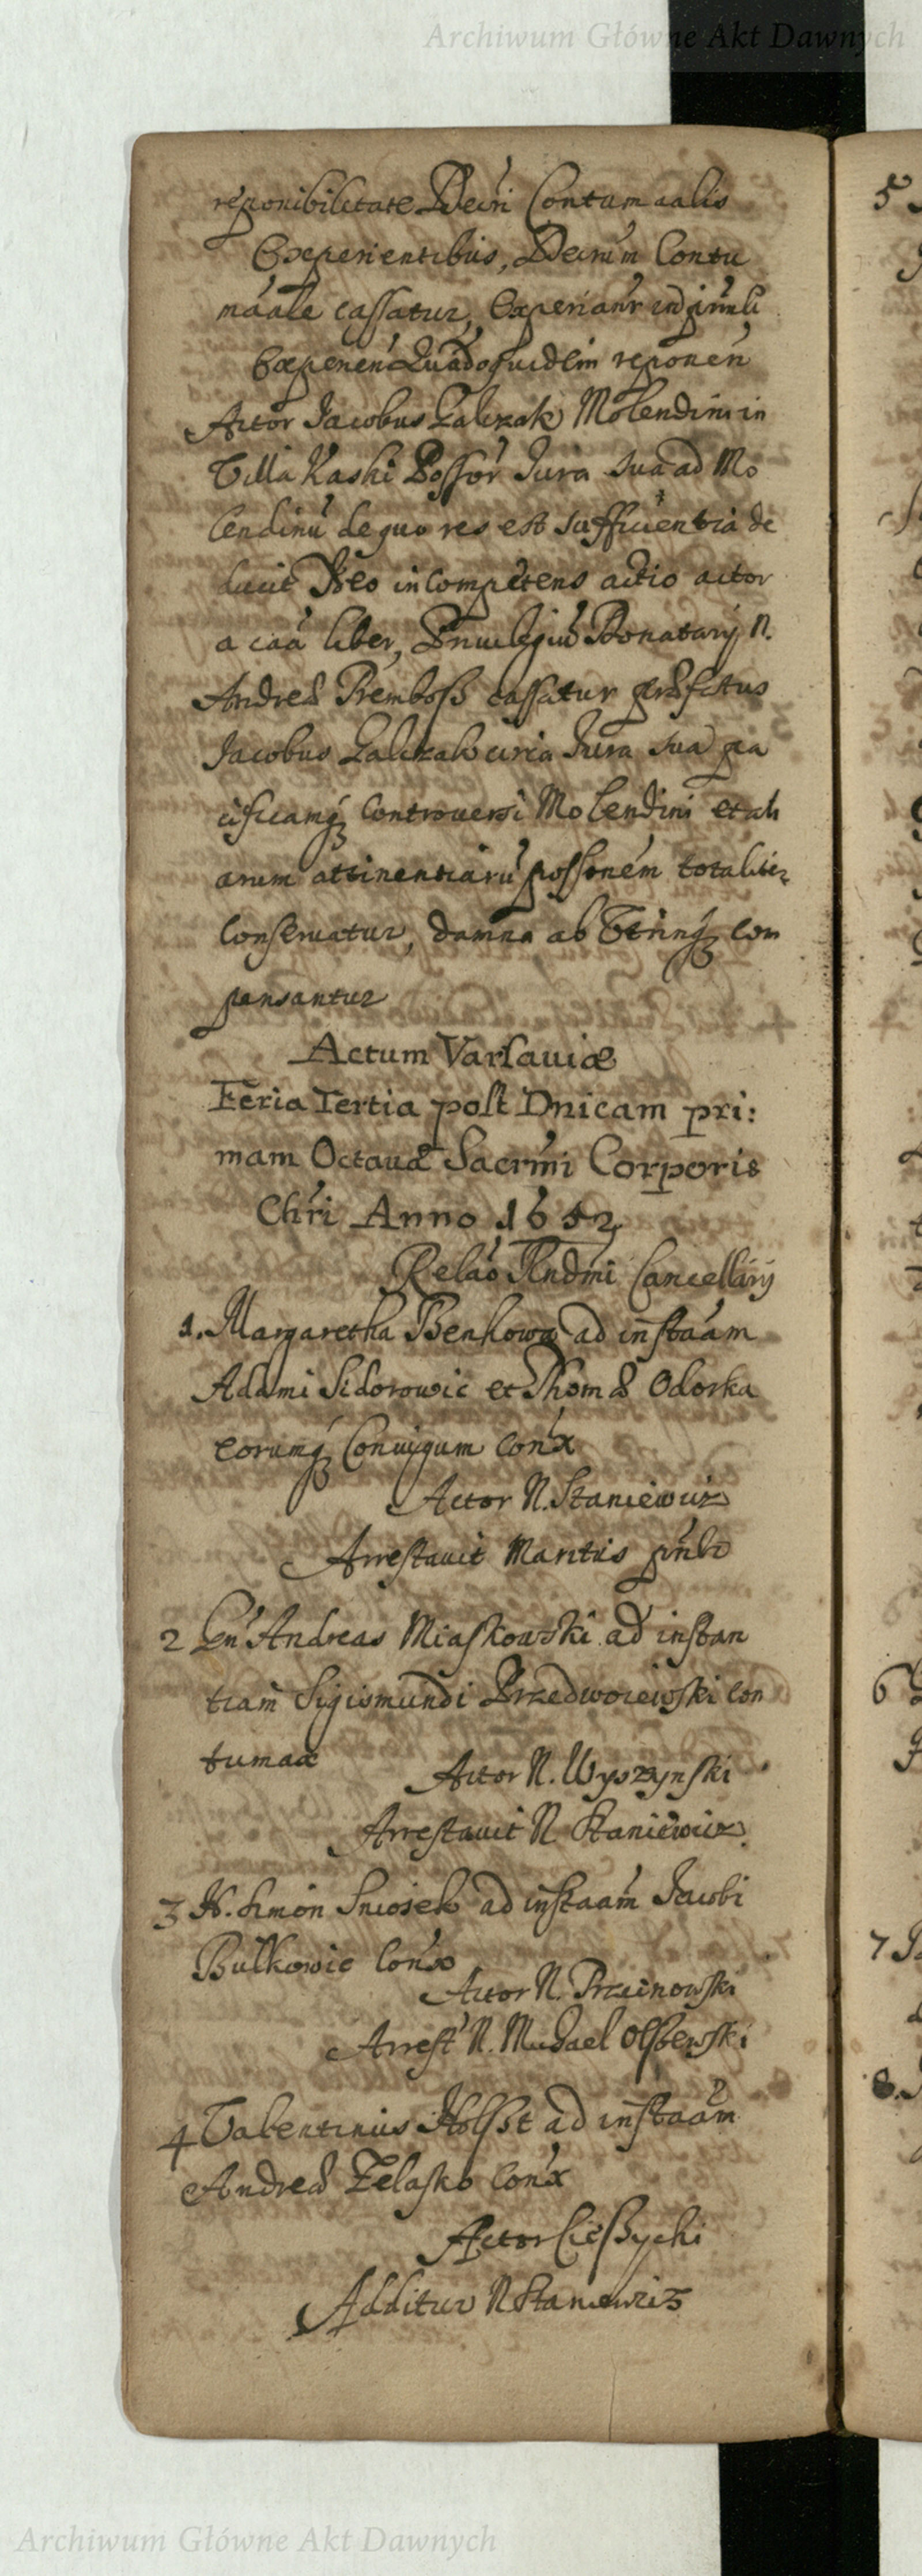 Archiwum Główne Akt Dawnych
reponibilitate Decri Contumacialis
Experientibus, Decrum Contu
maciale cassatur, Experianr
Experien Quadoquidem reponen
Actor Jacobus Galczak Molendini in
Villa Kaski Possor Jura sua ad Mo
lendinu de quo res est sufficientia de
ducit Ideo incompetens actio actor
a caa liber, Priuilegiu Donatarij N.
Andreæ Rembosz cassatur præfatus
Jacobus Galczak circa Jura sua pa
cificamq controuersi Molendini et ali
arum attinentiaru possonem totaliter
conseruatur, damna ab Utrinq com
pensantur
Actum Varsauiæ
Feria Tertia post Dnicam pri:
mam Octauæ Sacrmi Corporis
Chri Anno 1652
Relao Rndmi Cancellarij
1. Margaretha Benkowa ad instaam
Adami Sidorowic et Thomæ Odorka
eorumq Coniugum con̄x
Actor N. Staniewicz
Arrestauit Maritus
2 Gn Andreas Miaskowski ad instan
tiam Sigismundi Przedwoiewski con
tumax
Actor N. Wyszynski
Arrestauit N Staniewicz
3 H. Simon Sniosek ad instaam Jacobi
Bulkowic con̄x
Actor N. Przcinowski
Arrest N. Michael Olszewski
4 Valentinus Holszt ad instaam
Andreæ Zelasko con̄x
Actor Cieszycki
Additur N Staniewicz
5
6
7
8.
Archiwum Główne Akt Dawnych